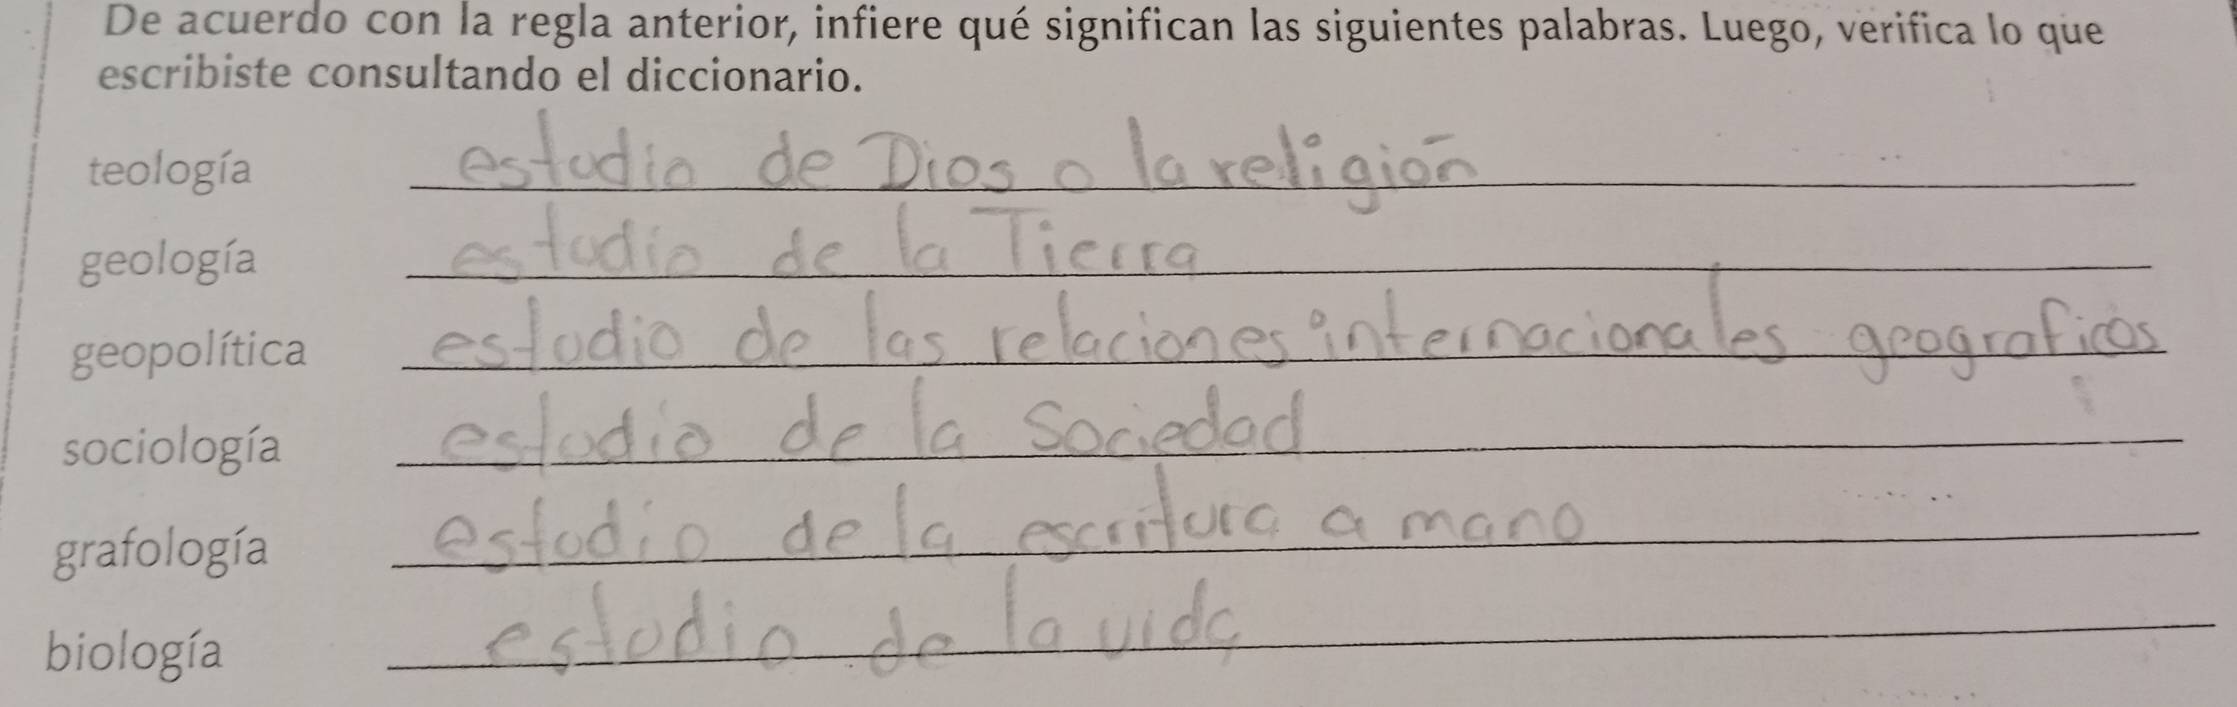 De acuerdo con la regla anterior, infiere qué significan las siguientes palabras. Luego, verifica lo que
escribiste consultando el diccionario.
teología estudio de Dios o la religión
geología estudio de la Tierra
geopolítica estudio de las relaciones internacionales geograficos
sociología estudio de la Sociedad
grafología estudio de la escritura a mano
biología estudio de la vida